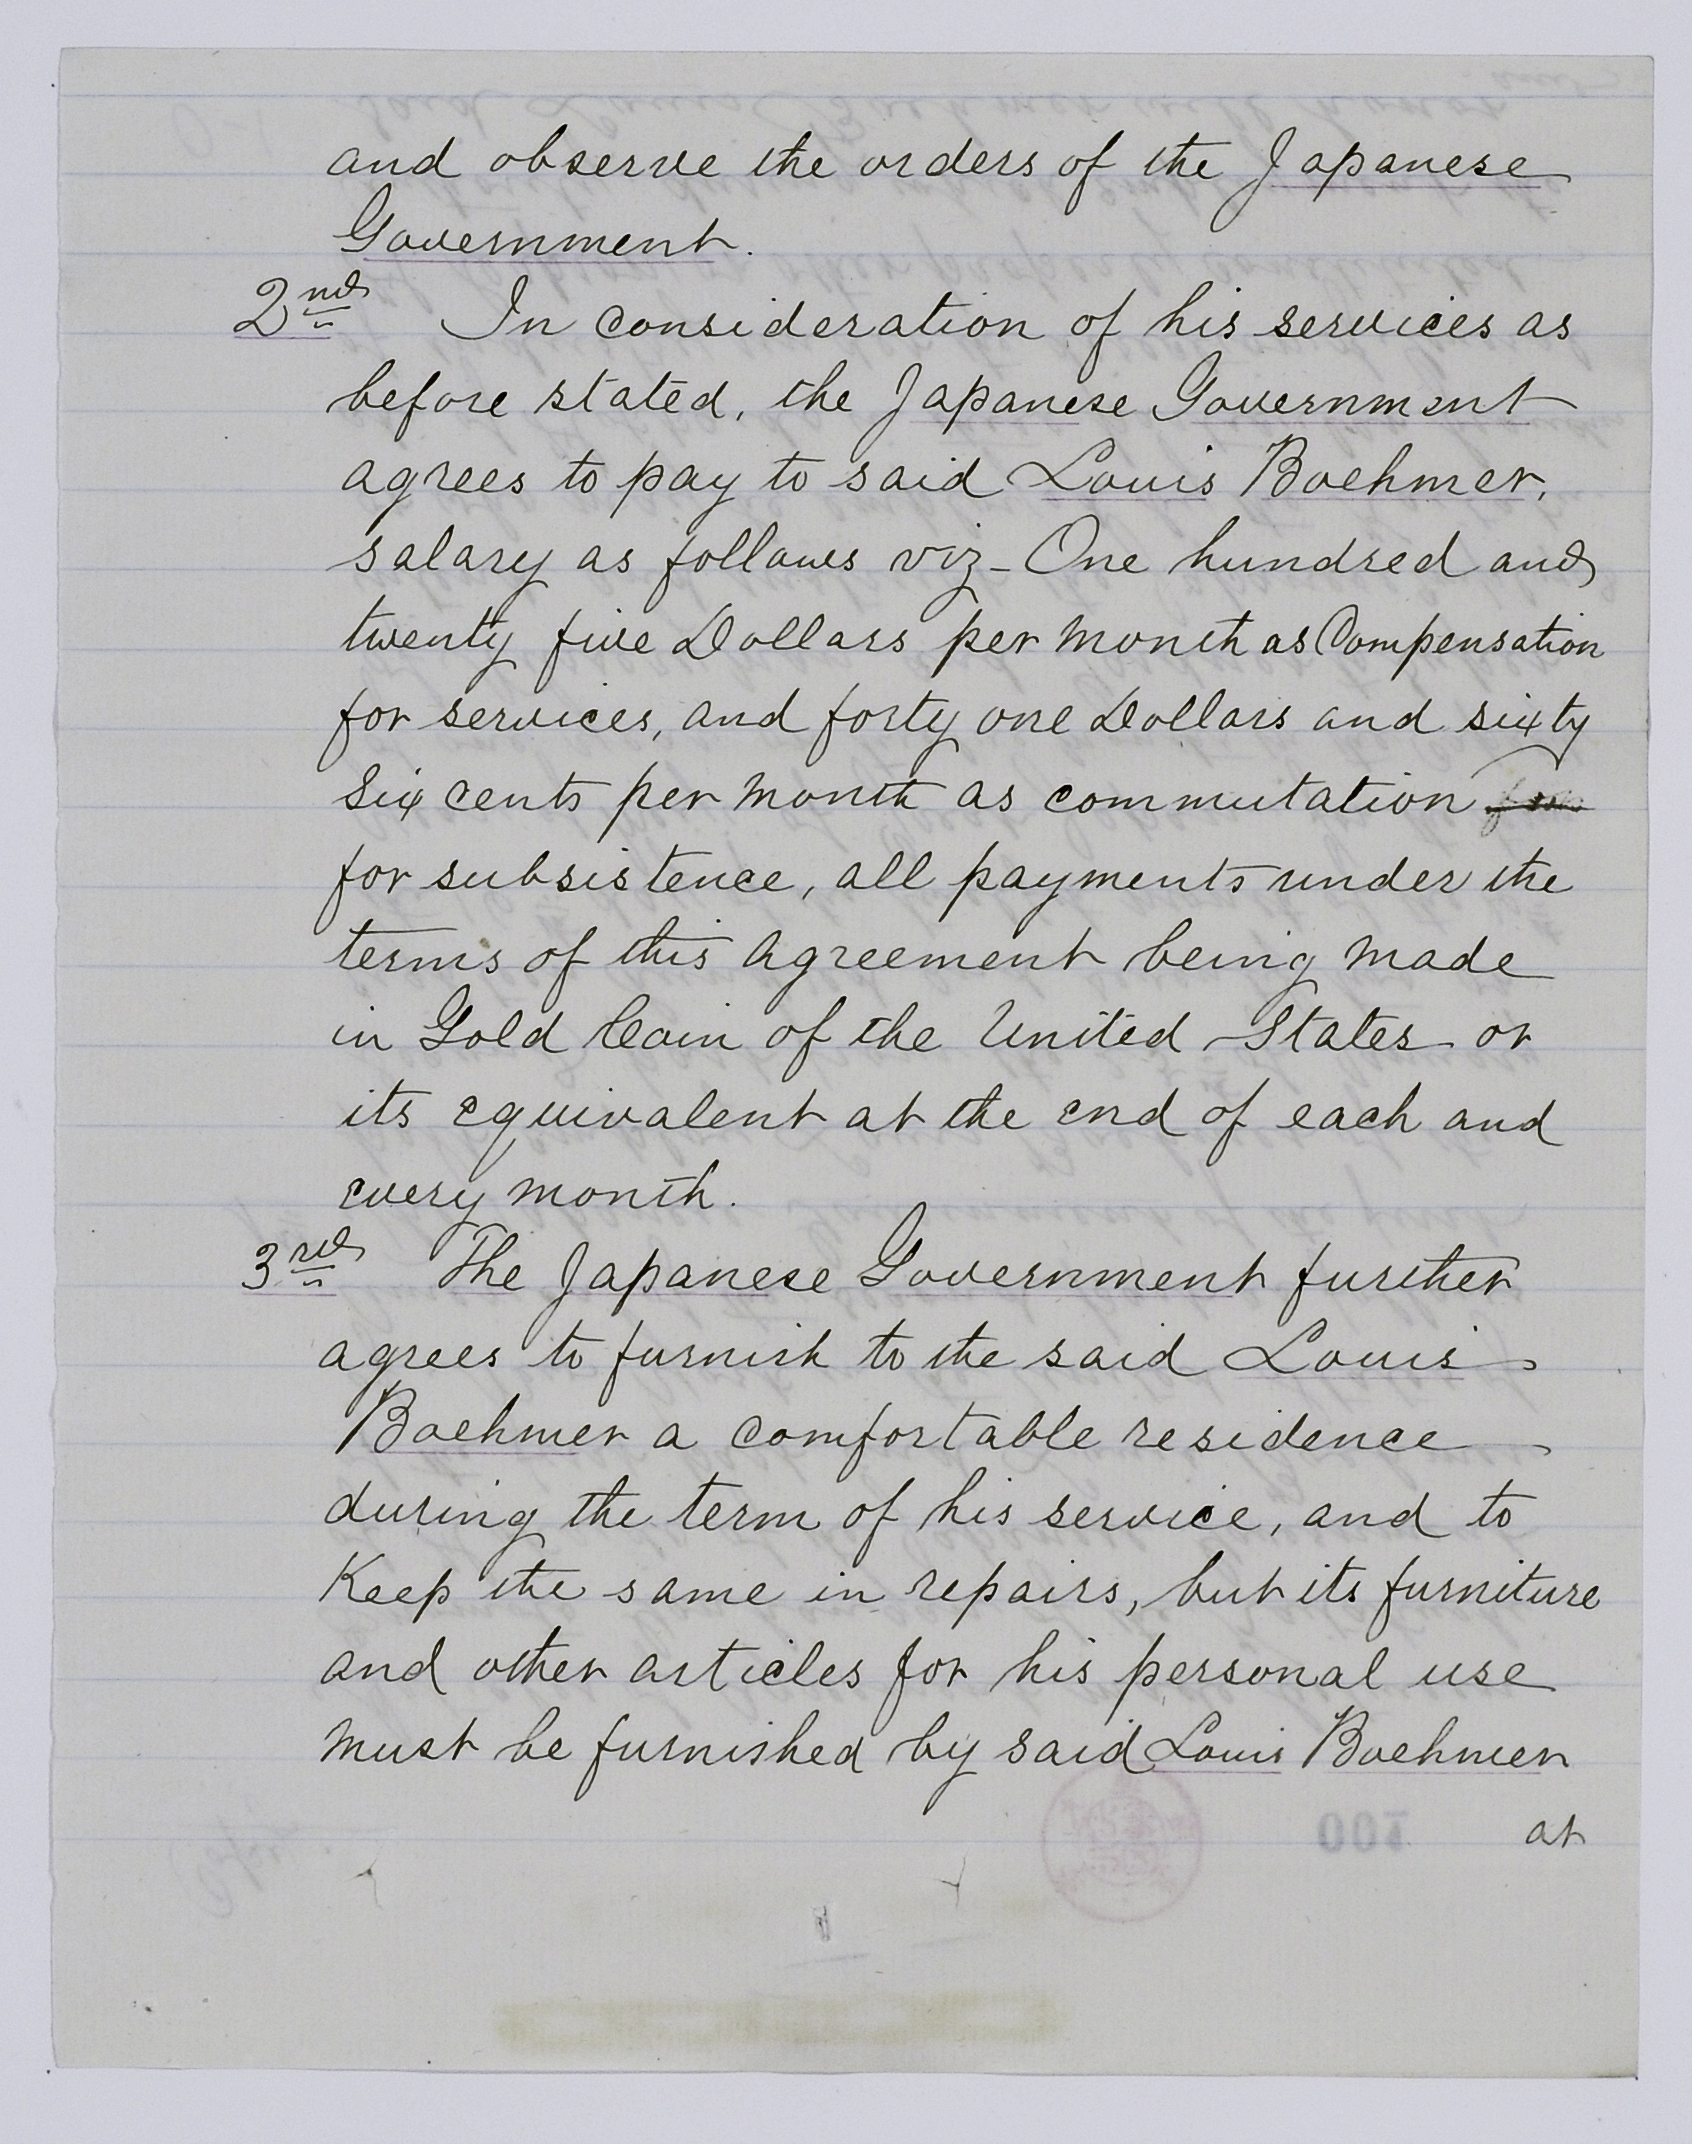 and observe the orders of the Japanese
Government.
2nd In consideration of his services as
before stated, the Japanese Government
agrees to pay to said Louis Boehmer,
salary as follows viz - One hundred and
twenty five Dollars per month as Compensation
for services, and forty one Dollars and sixty
six cents per month as commutation
for subsistence, all payments under the
terms of this Agreement being made
in Gold Coin of the United States or
its equivalent at the end of each and
every month.
3rd The Japanese Government further
agrees to furnish to the said Louis
Boehmer a comfortable residence
during the term of his service, and to
Keep the same in repairs, but its furniture
and other articles for his personal use
must be furnished by said Louis Boehmer
at